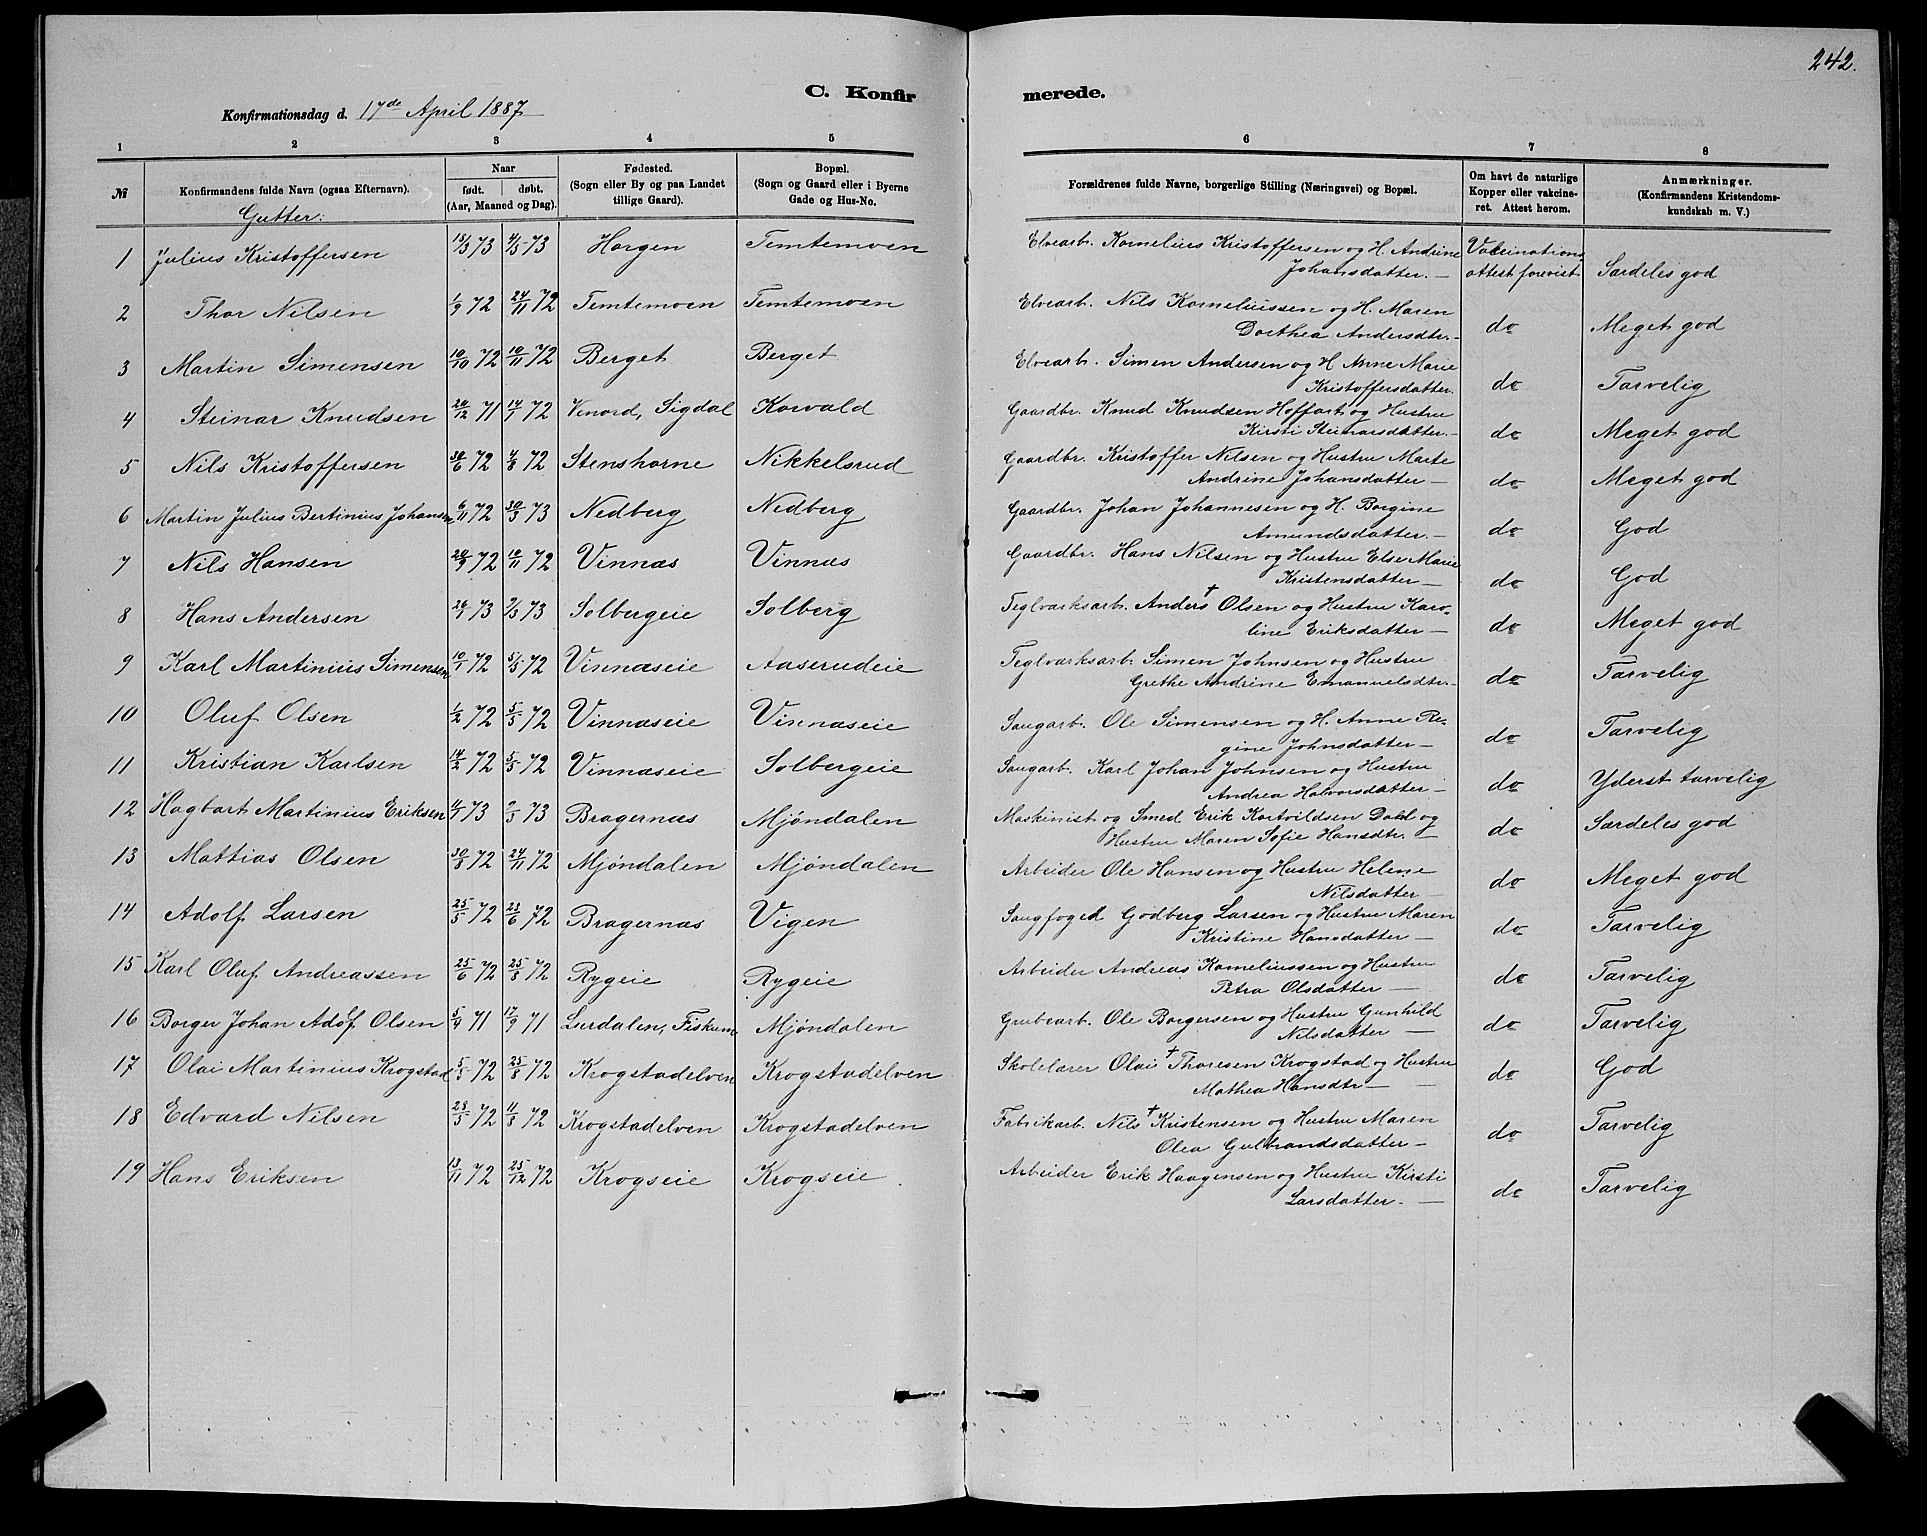 242.
C. Konfirmerede.
Konfirmationsdag d. 17de April 1887
1 2 3 4 5 6 7 8
№ Konfirmandens fulde Navn (ogsaa Efternavn). Naar født. døbt. (Aar, Maaned og Dag). Fødested. (Sogn eller By og paa Landet tillige Gaard). Bopæl. (Sogn og Gaard eller i Byerne Gade og Hus-No. Forældrenes fulde Navne, borgerlige Stilling (Næringsvei) og Bopæl. Om havt de naturlige Kopper eller vakcineret. Attest herom. Anmærkninger. (Konfirmandens Kristendomskundskab m. V.)
Gutter:
1 Julius Kristoffersen 18/3 73 4/5 73 Horgen Temtemoen Elvearb. Kornelius Kristoffersen og H. Andrine Vaccinations
Johansdatter. — attest forevist Særdeles god
2 Thor Nilsen 1/9 72 24/11 72 Temtemoen Temtemoen Elvearb. Nils Korneliussen og H. Maren
Dorthea Andersdtr. — do Meget god
3 Martin Simensen 10/10 72 10/11 72 Berget Berget Elvearb. Simen Andersen og H. Anne Marie
Kristoffersdatter. do Tarvelig
4 Steinar Knudsen 12 71 14/1 72 Vinord, Sigdal Korvald Gaardbr. Knud Knudsen Hoffart og Hustru
Kirsti Steinarsdatter. — do Meget god
5 Nils Kristoffersen 30/6 72 4/8 72 Stenshorne Nikkelsrud Gaardbr. Kristoffer Nilsen og Hustru Marte
Andrine Johansdatter — do Meget god
6 Martin Julius Bertinius Johansen 6/11 72 30/3 73 Nedberg Nedberg Gaardbr. Johan Johannesen og H. Borgine
Amundsdatter. — do God
7 Nils Hansen 9 72 10/11 72 Vinnæs Vinnæs Gaardbr. Hans Nilsen og Hustru Else Marie
Kristensdatter — do God
8 Hans Andersen 1 73 2/3 73 Solbergeie Solberg Teglværksarb. Anders † Olsen og Hustru Karo-
line Eriksdatter — do Meget god
9 Karl Martinius Simensen 10/1 72 5/5 72 Vinnæseie Aaserudeie Teglværksarb. Simen Johnsen og Hustru
Grethe Andrine Emanuelsdtr. — do Tarvelig
10 Oluf Olsen 1/2 72 5/5 72 Vinnæseie Vinnæseie Saugarb. Ole Simensen og H. Anne Re-
gine Johnsdatter — do Tarvelig
11 Kristian Karlsen 14/2 72 5/5 72 Vinnæseie Solbergeie Saugarb. Karl Johan Johnsen og Hustru
Andrea Halvorsdatter — do Yderst tarvelig
12 Hagbart Martinius Eriksen 4/1 73 2/3 73 Bragernæs Mjøndalen Maskinist og Smed Erik Kortvildsen Dahl og
Hustru Maren Sofie Hansdtr. — do Særdeles god
13 Mattias Olsen 30/8 72 24/11 72 Mjøndalen Mjøndalen Arbeider Ole Hansen og Hustru Helene
Nilsdatter — do Meget god
14 Adolf Larsen 25/5 72 23/6 72 Bragernæs Vigen Saugfoged Godberg Larsen og Hustru Maren
Kristine Hansdatter — do Tarvelig
15 Karl Oluf Andreassen 25/6 72 25/8 72 Rygeie Rygeie Arbeider Andreas Korneliussen og Hustru
Petra Olsdatter — do Tarvelig
16 Borger Johan Adolf Olsen 5/4 71 17/9 71 Lurdalen, Fiskum Mjøndalen Grubearb. Ole Borgersen og Hustru Gunhild
Nilsdatter — do Tarvelig
17 Olai Martinius Krogstad 5/5 72 25/8 72 Krogstadelven Krogstadelven Skolelærer Olai † Thoresen Krogstad og Hustru
Mathea Hansdtr — do God
18 Edvard Nilsen 28/5 72 11/8 72 Krogstadelven Krogstadelven Fabrikarb. Nils † Kristensen og Hustru Maren
Olea Gulbrandsdatter — do Tarvelig
19 Hans Eriksen 13/11 72 25/12 72 Krogseie Krogseie Arbeider Erik Haagensen og Hustru Kirsti
Larsdatter — do Tarvelig